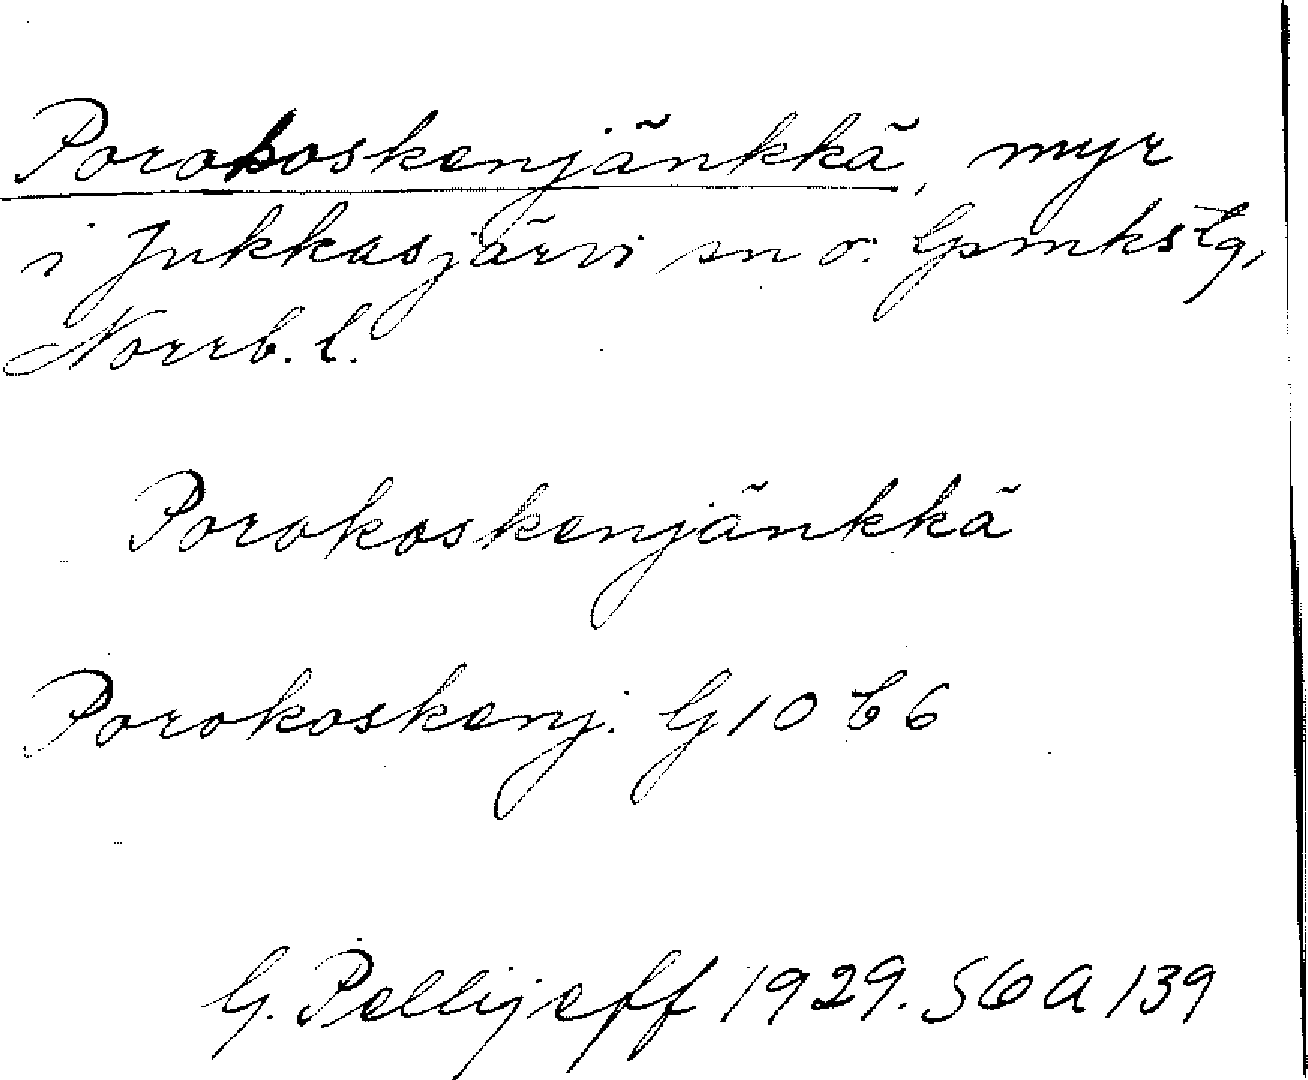 Porokoskenjänkkä, myr
i Jukkasjärvi sn o. Gpmkstg,
Norrb. l.
Porokoskenjänkkä
Porokoskenj. G 10 C 6
G. Pellijeff 1929. S6a 139